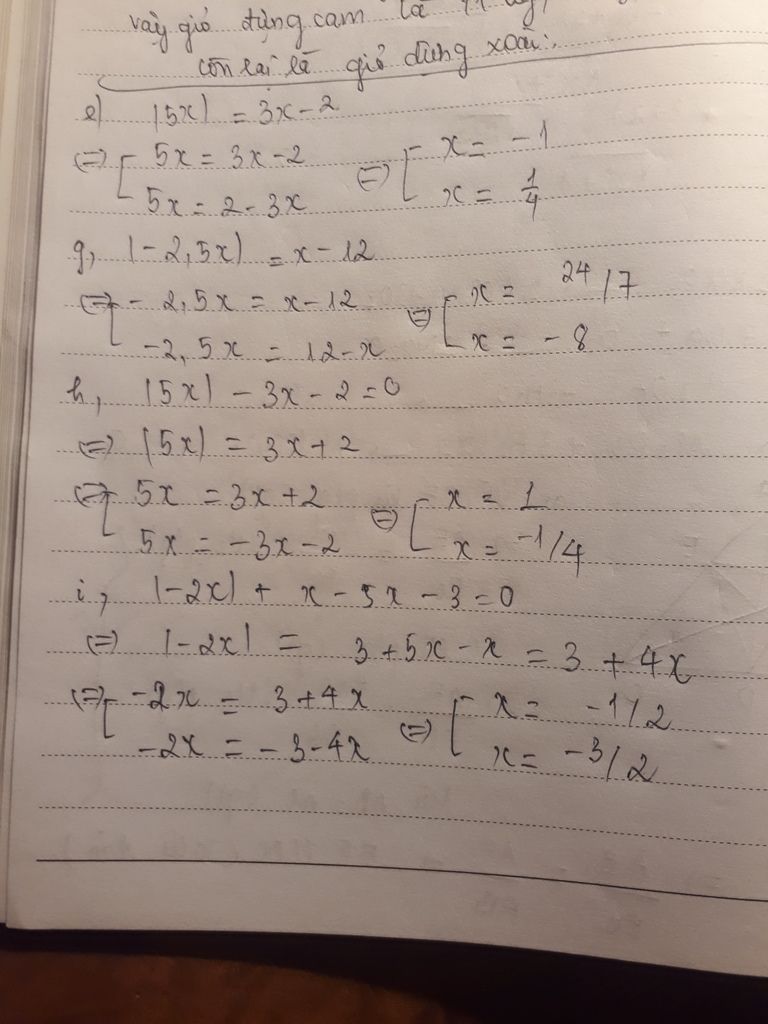 vậy giỏ đựng cam là
còn lại là giỏ đựng xoài.
e) |5x| = 3x - 2
(=) [ 5x = 3x - 2 (=) [ x = -1
5x = 2 - 3x x = 1/4
g, |-2,5x| = x - 12
(=) [ - 2,5x = x - 12 (=) [ x = 24/7
-2,5x = 12 - x x = - 8
h, |5x| - 3x - 2 = 0
(=) |5x| = 3x + 2
(=) [ 5x = 3x + 2 (=) [ x = 1
5x = -3x - 2 x = -1/4
i, |-2x| + x - 5x - 3 = 0
(=) |-2x| = 3 + 5x - x = 3 + 4x
(=) [ -2x = 3 + 4x (=) [ x = -1/2
-2x = - 3 - 4x x = -3/2